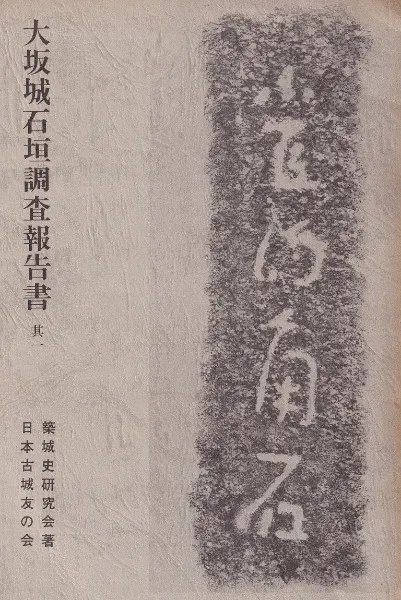 大坂城石垣調査報告書 其一
築城史研究会著
日本古城友の会
角石